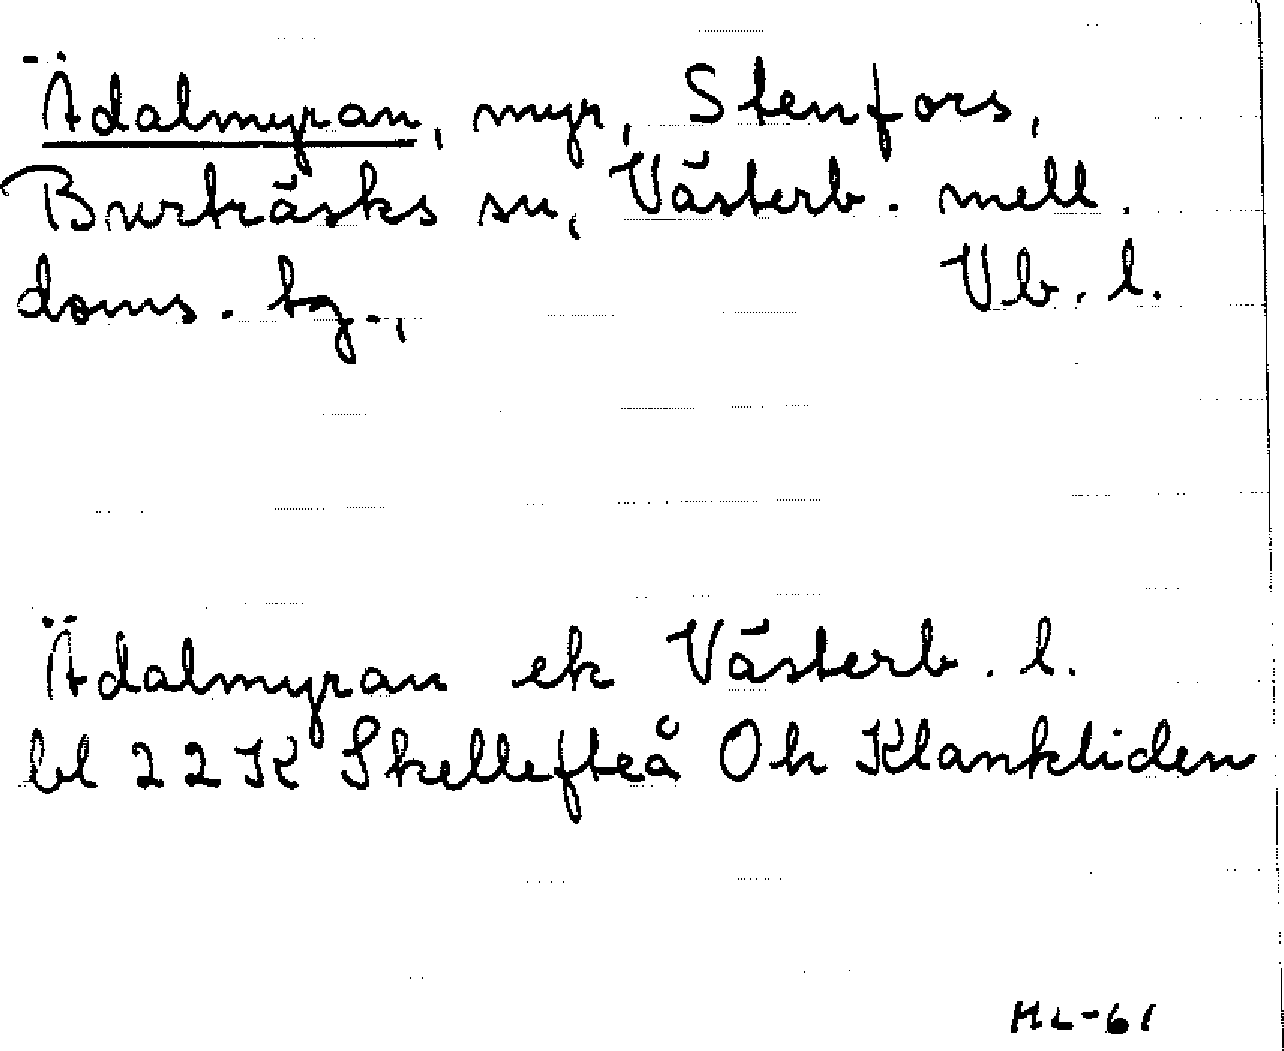 Ädalmyran, myr, Stenfors,
Burträsks sn, Västerb. mell.
doms. bg., Vb. l.
Ädalmyran ek Västerb. l.
bl 22K Skellefteå Oh Klankliden
HL-61